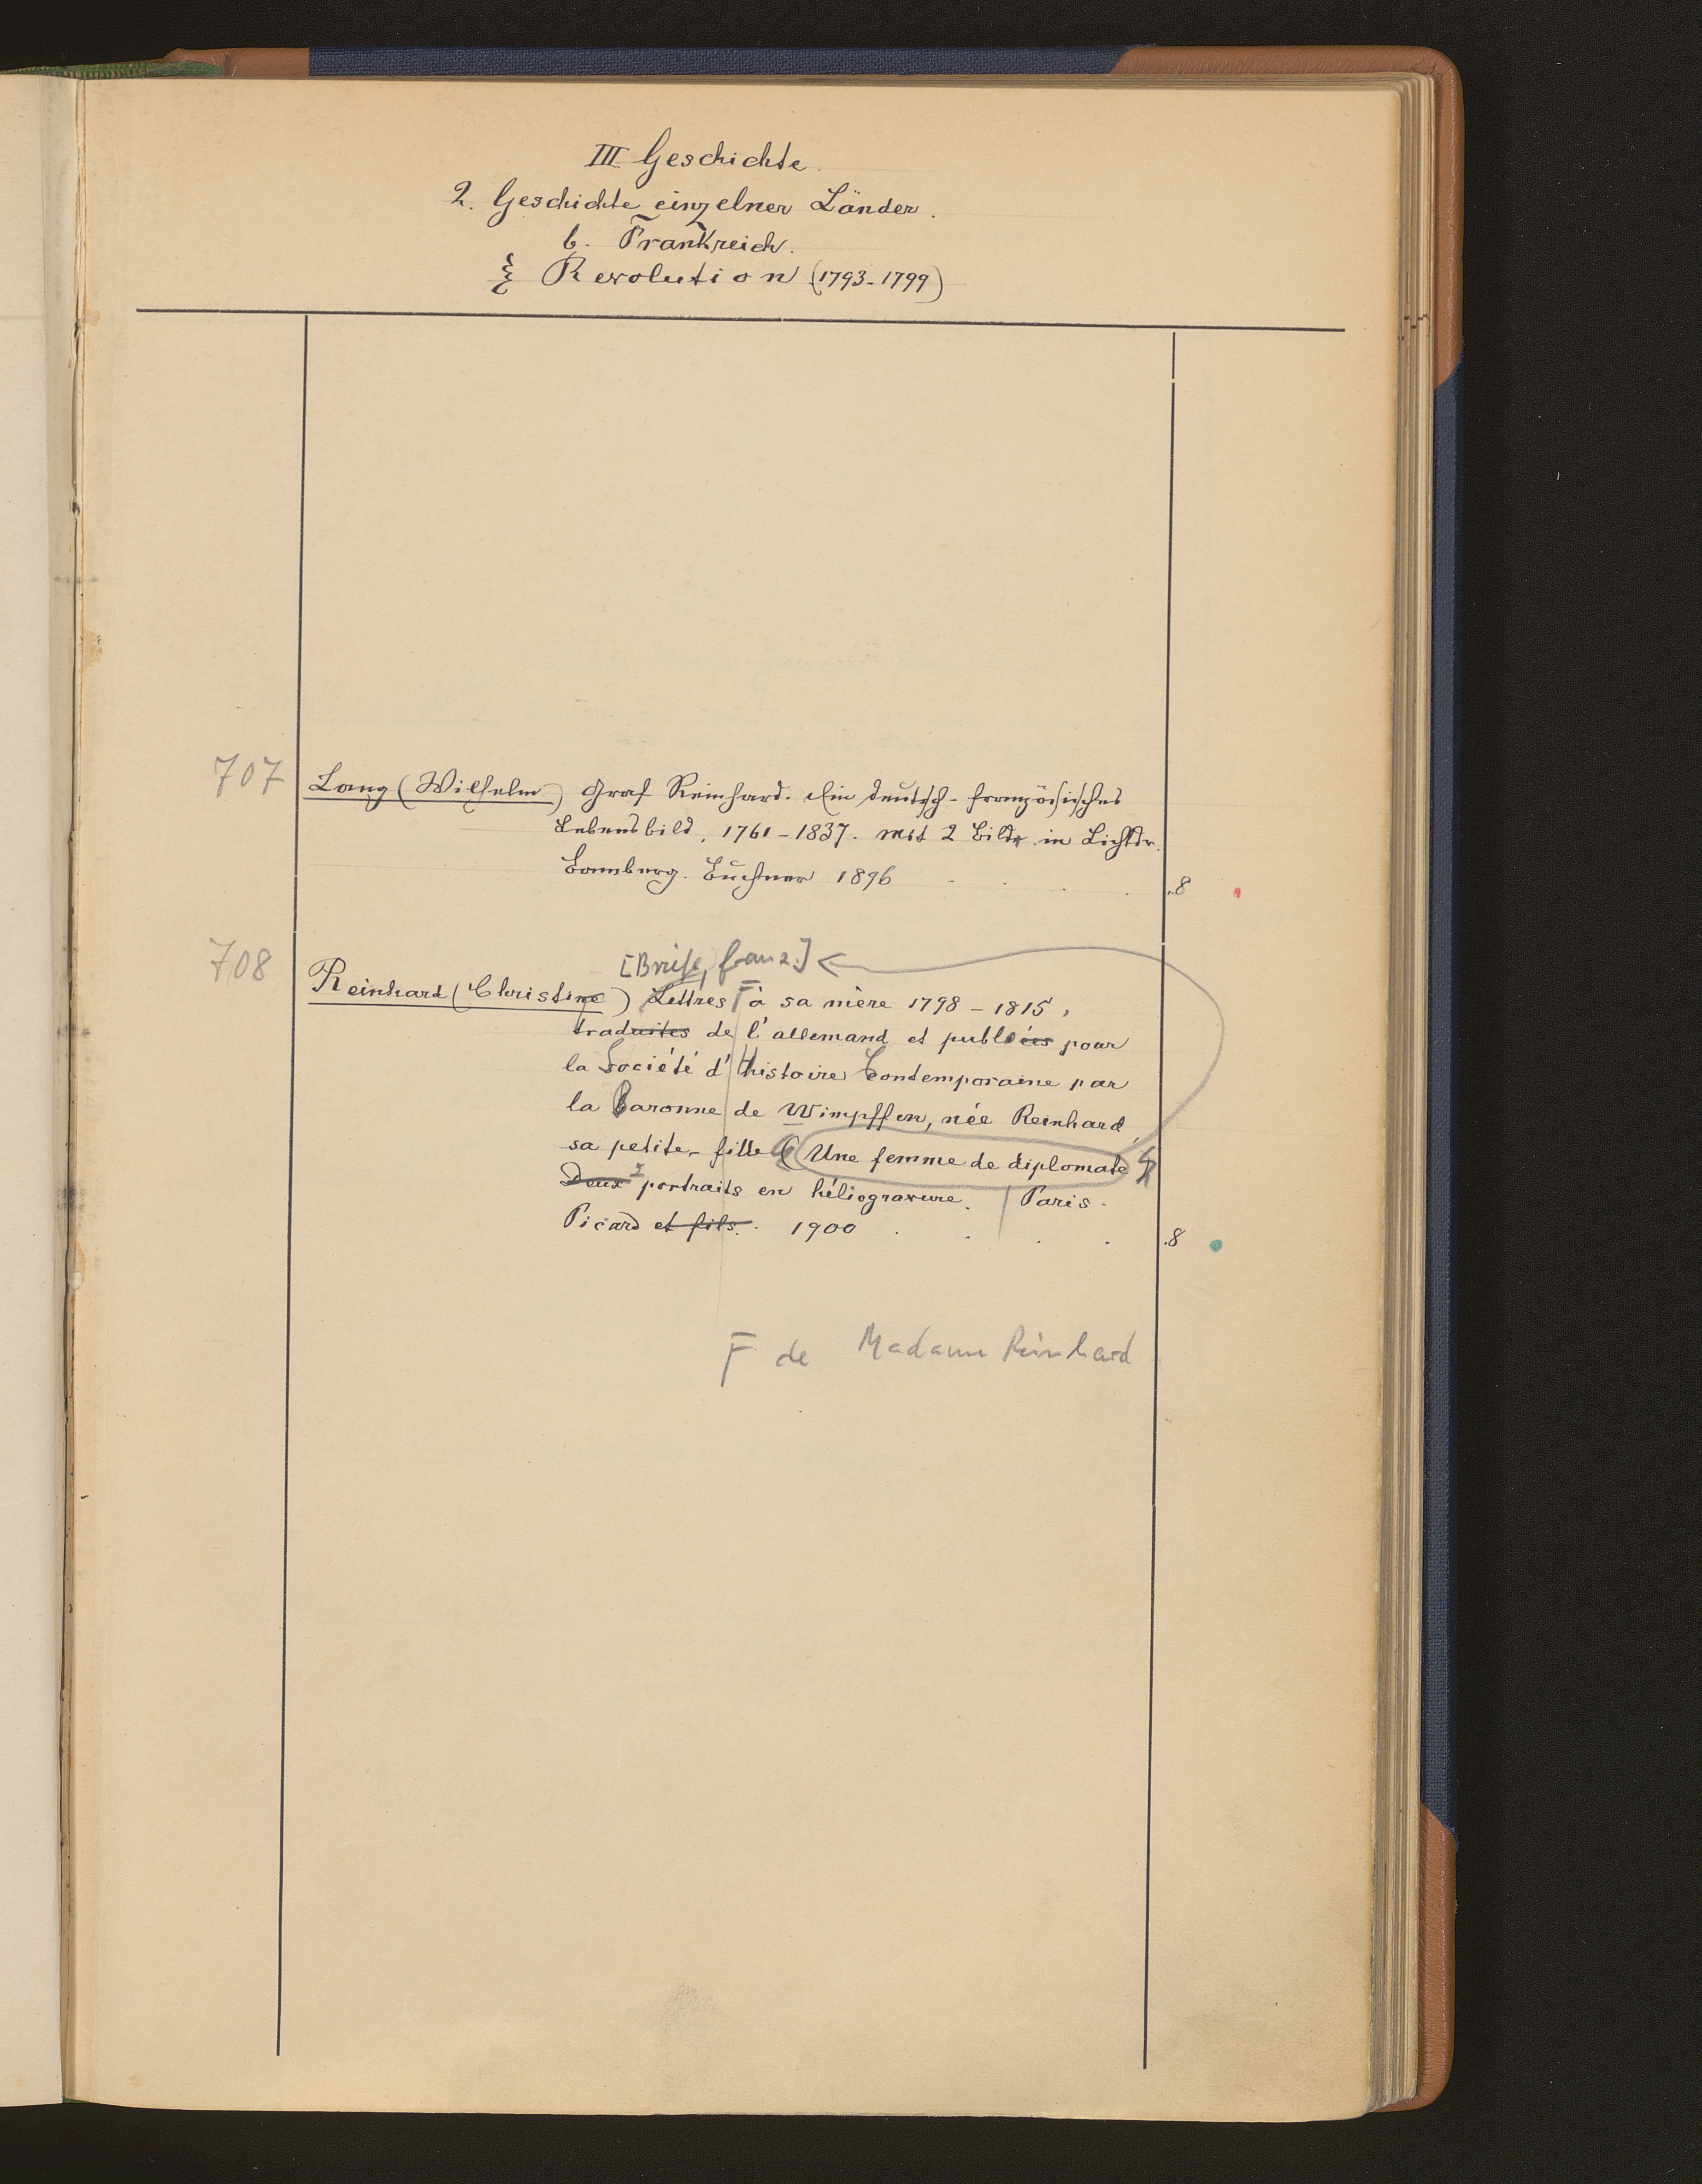 III Geschichte.
2. Geschichte einzelner Länder.
b. Frankreich.
ξ Revolution (1793-1799)
707 Lang (Wilhelm) Graf Reinhard. Ein deutsch-französisches
Lebensbild, 1761-1837. Mit 2 Bildn. in Lichtdr.
Bamberg. Buchner 1896 . . . . 8
[Briefe, franz.]
708 Reinhard (Christine) Lettres Γ à sa mère 1798-1815,
traduites de l'allemand et publiées pour
la Société d'Histoire Contemporaine par
la Baronne de Wimpffen, née Reinhard,
sa petite-fille (Une femme de diplomate)
Deux 2 portraits en héliogravure. Paris.
Picard et fils. 1900 . . . . 8
Γ de Madame Reinhard